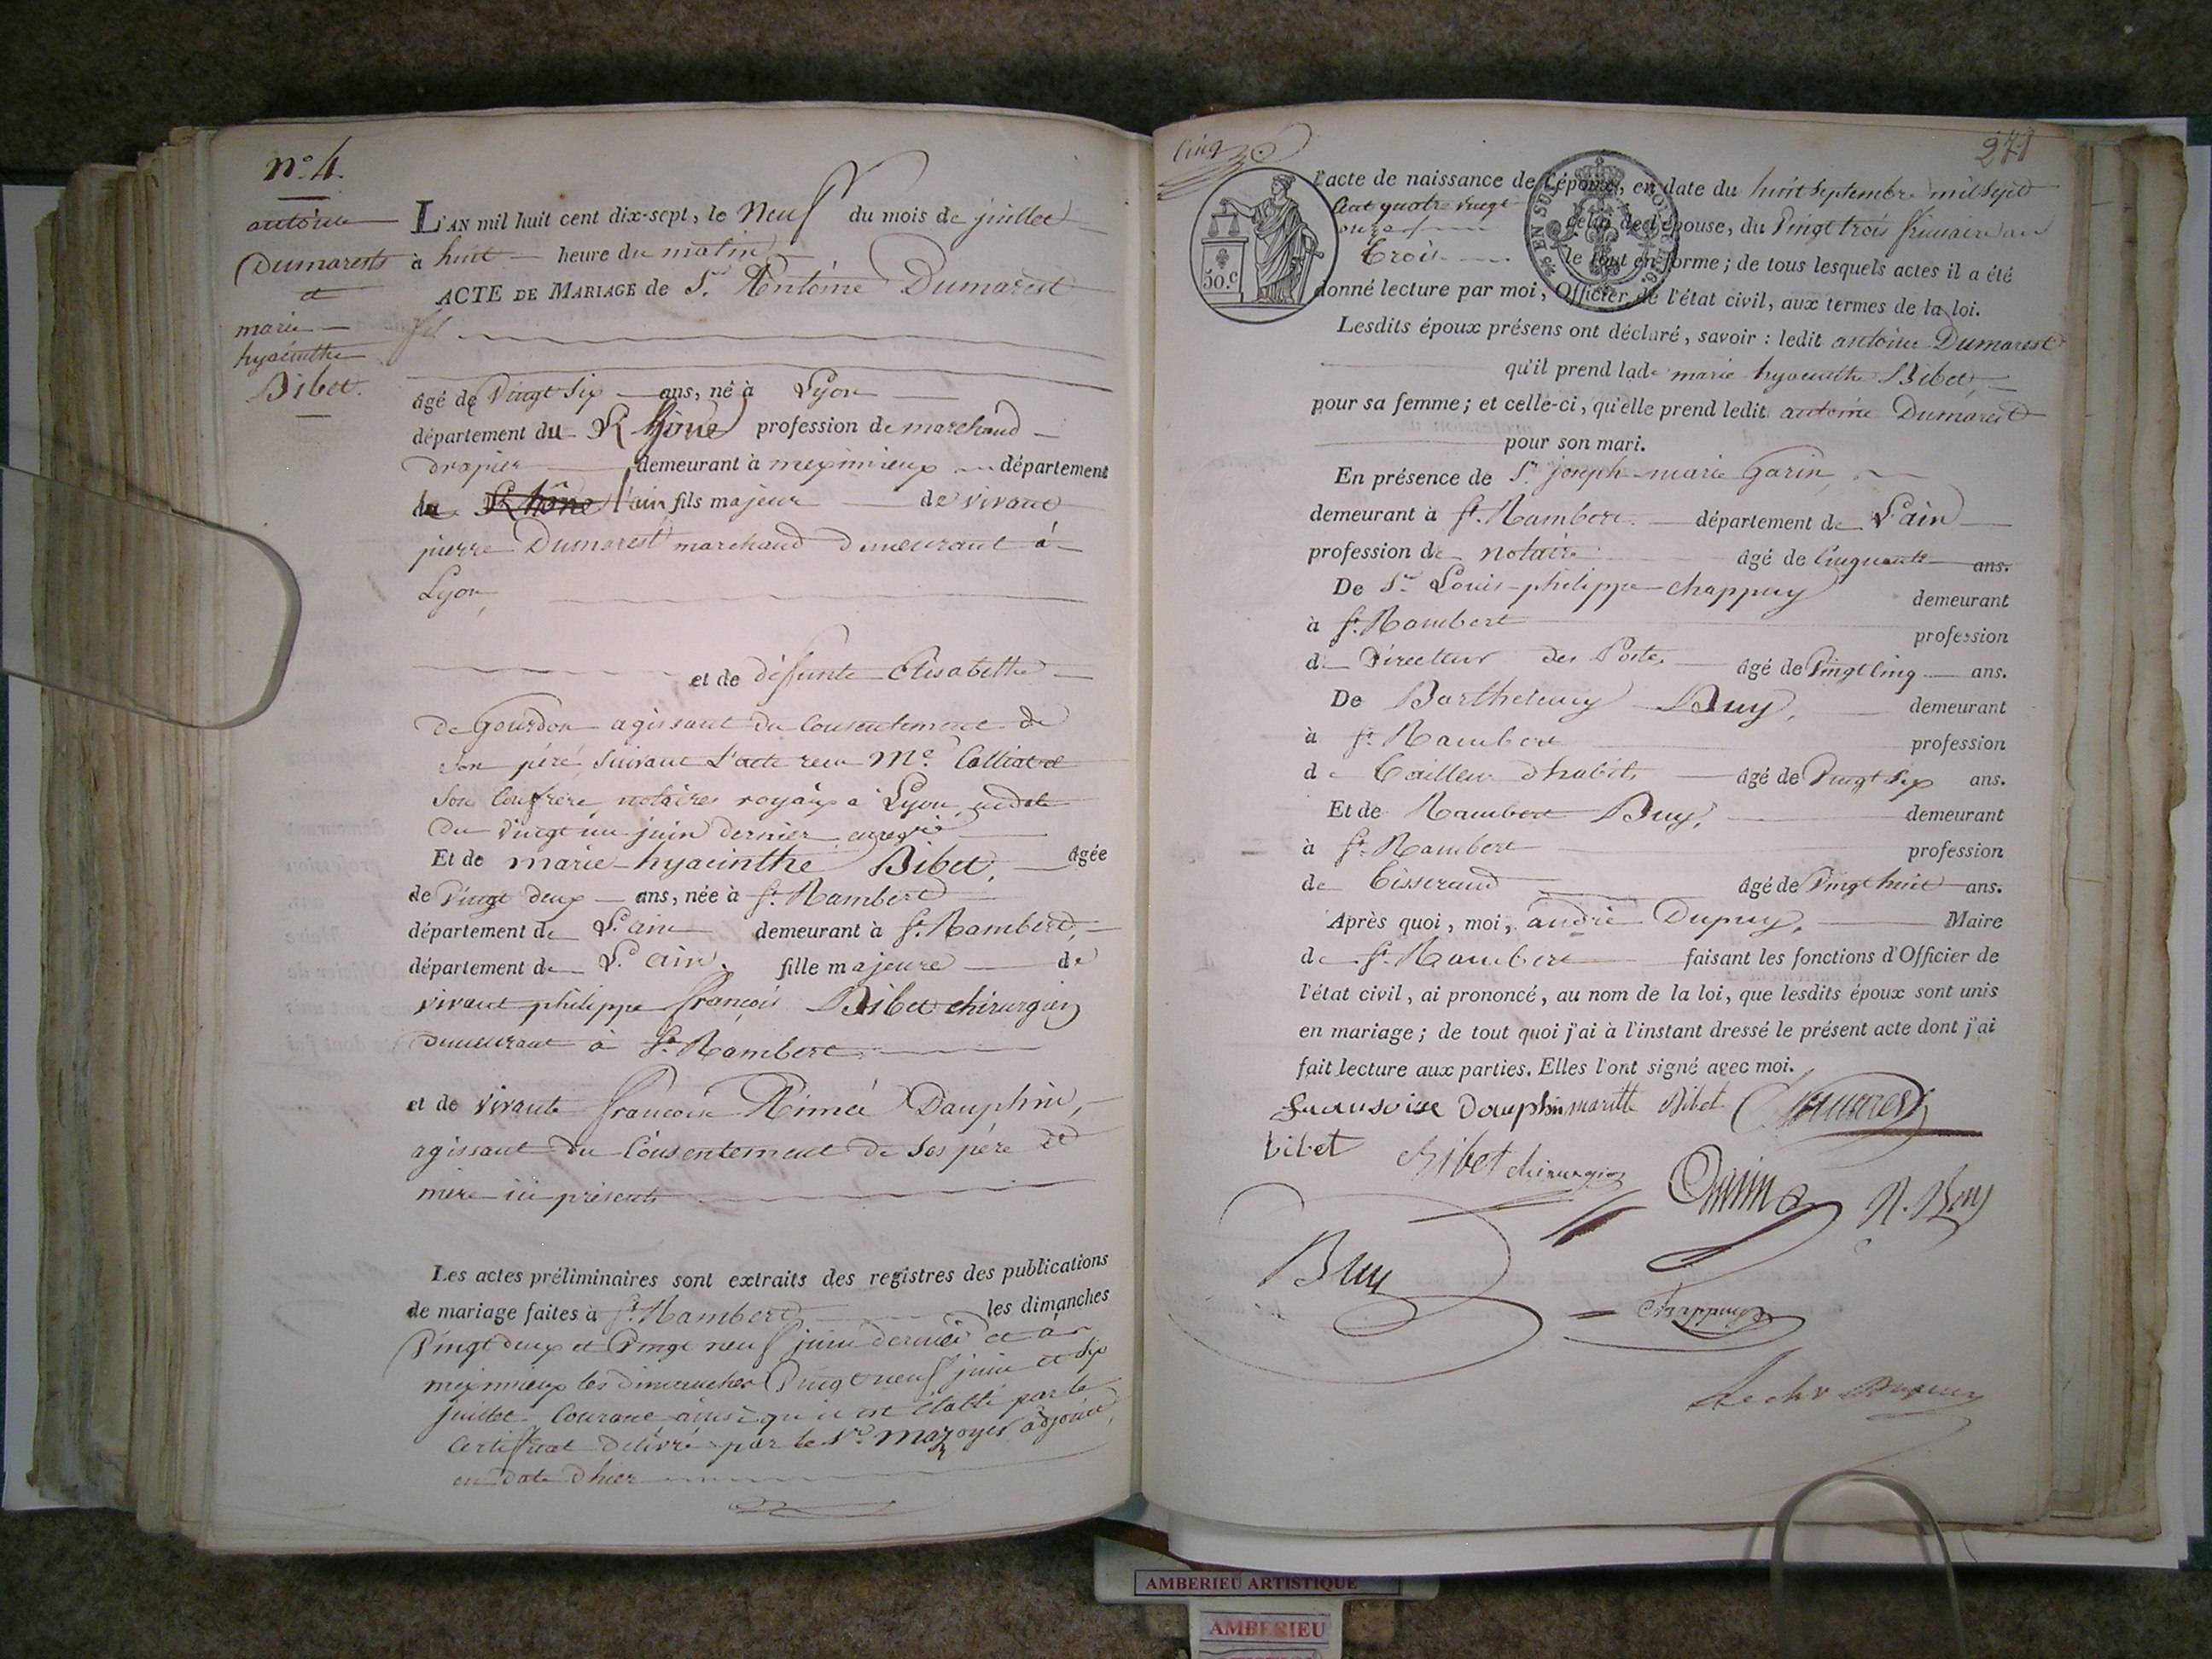 n.° 4.
antoine
Dumarest
et
marie
hyacinthe
Bibet.
L'AN mil huit cent dix-sept, le Neuf du mois de juillet
à huit heure du matin
ACTE DE MARIAGE de Sr. Antoine Dumarest
âgé de Vingt Six ans, né à Lyon
département du Rhône profession de marchand
drapier demeurant à meximieux département
de Rhône l'ain fils majeur de vivant
pierre Dumarest marchand demeurant à
Lyon,
et de déffunte Elisabethe
De Gourdon agissant du Consentement de
son péré suivant L'acte recu Me. Colliat et
son Confrère, notaires royaux a Lyon, en date
du vingt un juin dernier enregré
Et de marie-hyacinthe Bibet, âgée
de Vingt deux ans, née à St. Rambert
département de L'ain demeurant à St. Rambert,
département de L'ain, fille majeure de
vivant philippe françois Bibet chirurgien
demeurant a St. Rambert
et de vivante francoise Aimée Dauphin,
agissant du Consentement de ses père et
mère ici présents
Les actes préliminaires sont extraits des registres des publications
de mariage faites à St. Rambert les dimanches
Vingt deux et Vingt neuf juin dernier et à
meximieux les dimanches Vingt neuf juin et Six
juillet Courant ainsi qu'il est établi par le
Certificat délivré par le Sr. Mazoyer adjoint,
en date d'hier
Cinq
271
50.c
l'acte de naissance de l'époux, en date du huit Septembre mil Sept
Cent quatre vingt
onze celui de l'épouse, du Vingt trois frimaire an
Trois le tout en forme ; de tous lesquels actes il a été
donné lecture par moi, Officier de l'état civil, aux termes de la loi.
Lesdits époux présens ont déclaré, savoir : ledit antoine Dumarest
qu'il prend lade marie hyacinthe Bibet
pour sa femme ; et celle-ci, qu'elle prend ledit antoine Dumarest
pour son mari.
En présence de Sr. joseph-marie Garin,
demeurant à St. Rambert département de L'ain
profession de notaire âgé de Cinquante ans.
De Sr. Louis-philippe Chappuy demeurant
à St. Rambert profession
de Directeur des Postes âgé de Vingt Cinq ans.
De Barthelemy Buy, demeurant
à St. Rambert profession
de Tailleur d'habits âgé de Vingt Six ans.
Et de Rambert Buy, demeurant
à St. Rambert profession
de Tisserand âgé de Vingt huit ans.
Après quoi, moi, andré Dupuy, Maire
de St. Rambert faisant les fonctions d'Officier de
l'état civil, ai prononcé, au nom de la loi, que lesdits époux sont unis
en mariage ; de tout quoi j'ai à l'instant dressé le présent acte dont j'ai
fait lecture aux parties. Elles l'ont signé avec moi.
fransoise Dauphin Bibet Dumarest
bibet Bibet chirurgien R. Buy
Buy
Chappuy
Dupuy
AMBERIEU ARTISTIQUE
AMBERIEU